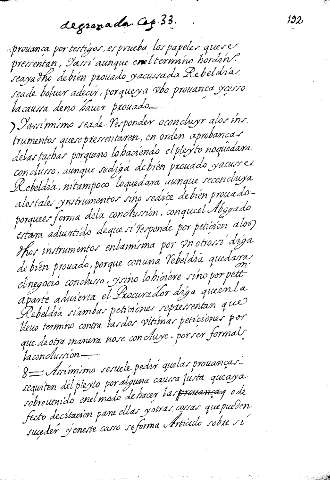 de granada. Cap. 33. 192
prouança por testigos, es prueba los papeles que se
presentan, y assi aunque en el termino hordin.
sea dho de bien prouado y acussada Rebeldia
se a de boluer a decir, porque ya vbo prouança y cesso
la caussa de no hauer prouado
Y assimismo se a de Responder o concluyr a los ins-
trumentos que se presentaren, en orden a prouanças
de las fechas porque no lo haciendo el pleyto no quedara
conclusso, aunque se diga de bien prouado y acusse
Rebeldia, ni tampoco lo quedara aunque se concluya
a los tales ynstrumentos sino se dice de bien prouado
porque es forma de la conclussion, con que el Abogado
estara aduertido de que si Responde por peticion a los
dhos instrumentos en la misma por vn otrossi diga
de bien prouado, porque con una Rebeldia quedara
el negocio conclusso, y sino lo hiciere sino por petton
aparte aduierta el Procurador diga que en la
Rebeldia si ambas peticiones se presentan que
lleuo termino contra las dos vltimas peticiones por
que de otra manera no se concluye, por ser formal
la conclussion
8 = Assimismo se suele pedir que las prouanças
se quiten del pleyto por alguna caussa justa que aya
sobreuenido en el modo de hacer las prouanças o de
fecto de citacion para ellas y otras cosas que pueden
suceder y en este casso se forma Articulo sobre si